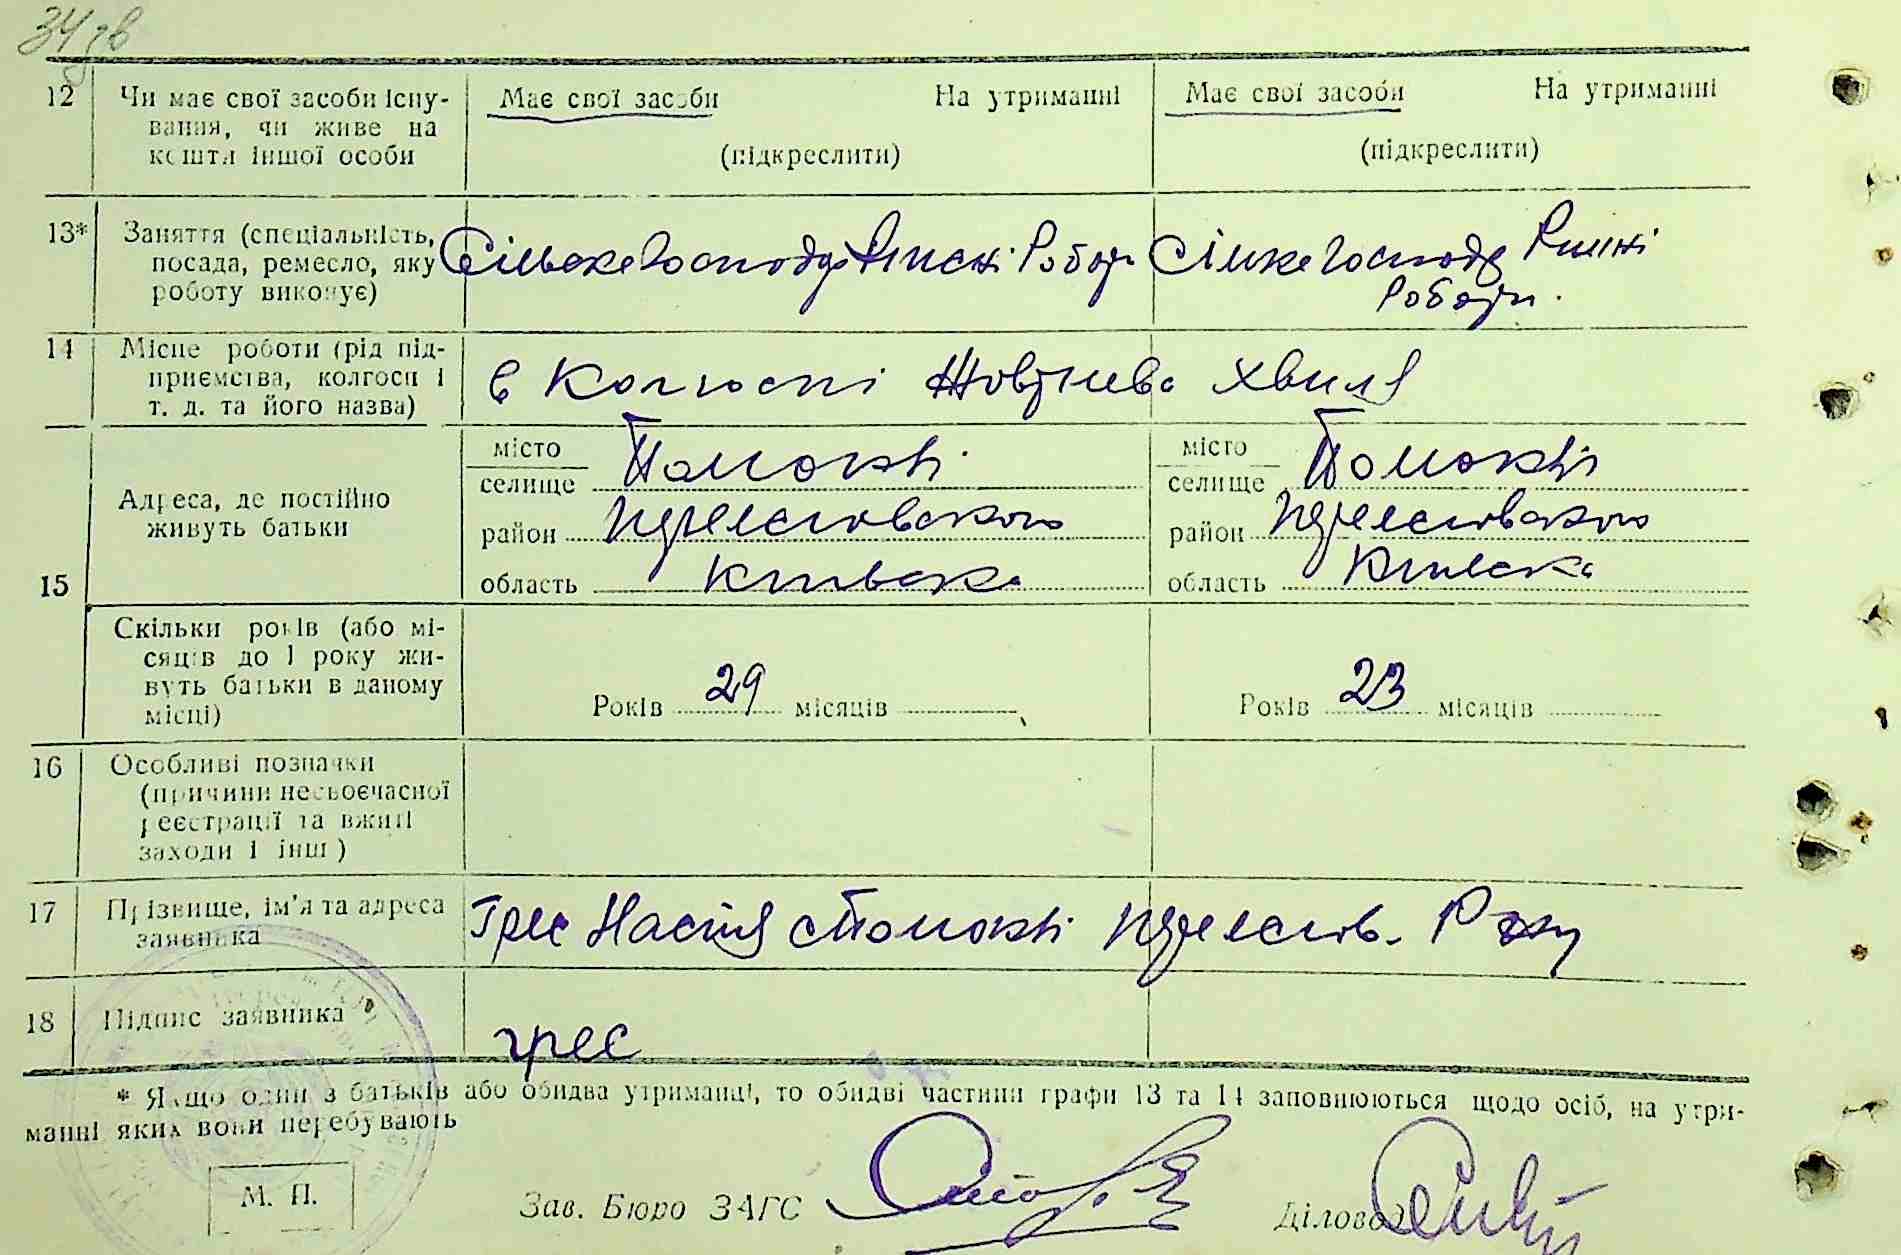 34 зв
12 Чи має свої засоби існу-
вання, чи живе на
кошти іншої особи
Має свої засоби На утриманні
(підкреслити)
Має свої засоби На утриманні
(підкреслити)
13* Заняття (спеціальність,
посада, ремесло, яку
роботу виконує)
14 Місце роботи (рід під-
приємства, колгосп і
т. д. та його назва)
в колгоспі Жовтнева хвиля
15 Адреса, де постійно
живуть батьки
місто
селище Помоклі
район
область Київська
місто
селище Помоклі
район
область Київська
Скільки років (або мі-
сяців до 1 року жи-
вуть батьки в даному
місці)
Років 29 місяців
Років 23 місяців
16 Особливі позначки
(причини несвоєчасної
реєстрації та вжиті
заходи і інш.)
17 Прізвище, ім'я та адреса
заявника
Грес Настя с Помоклі
18 Підпис заявника
грес
* Якщо один з батьків або обидва утриманці, то обидві частини графи 13 та 14 заповнюються щодо осіб, на утри-
манні яких вони перебувають
М. П.
Зав. Бюро ЗАГС
Діловод